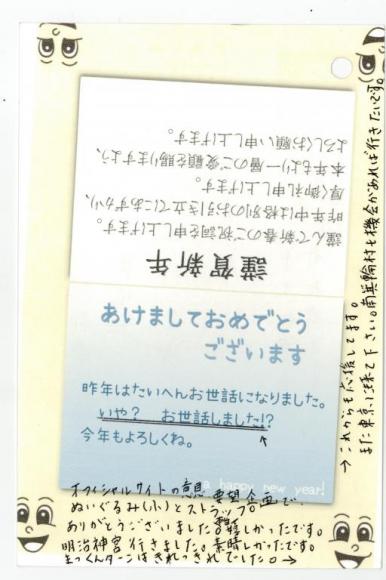 謹賀新年
謹んで新春のご祝詞を申し上げます。
昨年中は格別のお引き立てにあずかり、
厚く御礼申し上げます。
本年もより一層のご愛顧を賜りますよう、
よろしくお願い申し上げます。
あけましておめでとう
ございます
昨年はたいへんお世話になりました。
いや? お世話しました!?
今年もよろしくね。
a happy new year!
オフィシャルサイトの意見 要望企画で、
ぬいぐるみ(小)とストラップ
ありがとうございました。嬉しかったです。
明治神宮行きました。素晴しかったです。
はきれっきれでした。→
→これからも応援してます。
また東京に来て下さい。南箕輪村も機会があれば行きたいです。